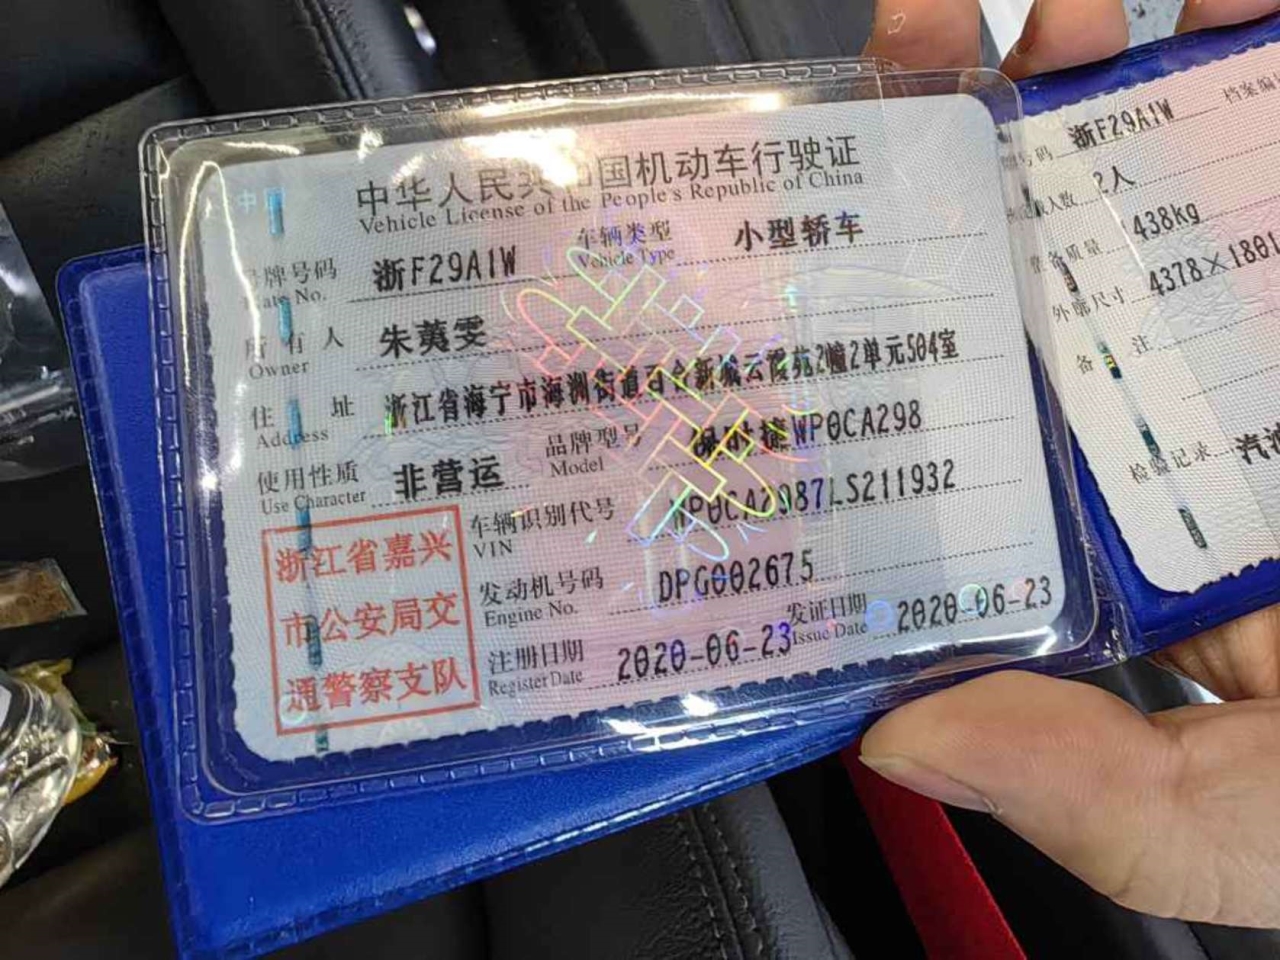 中华人民共和国机动车行驶证
Vehicle License of the People's Republic of China
号牌号码 浙F29A1W 车辆类型 小型轿车
Plate No. Vehicle Type
所有人 朱荑雯
Owner
住址 浙江省海宁市海洲街道百合新城云霞苑2幢2单元504室
Address
使用性质 非营运 品牌型号 保时捷WP0CA298
Use Character Model
车辆识别代号 WP0CA2987LS211932
VIN
发动机号码 DPG002675
Engine No.
注册日期 2020-06-23 发证日期 2020-06-23
Register Date Issue Date
浙江省嘉兴
市公安局交
通警察支队
号码 浙F29A1W 档案编
人数 2人
整备质量 438kg
外廓尺寸 4378×1801
备注
检验记录